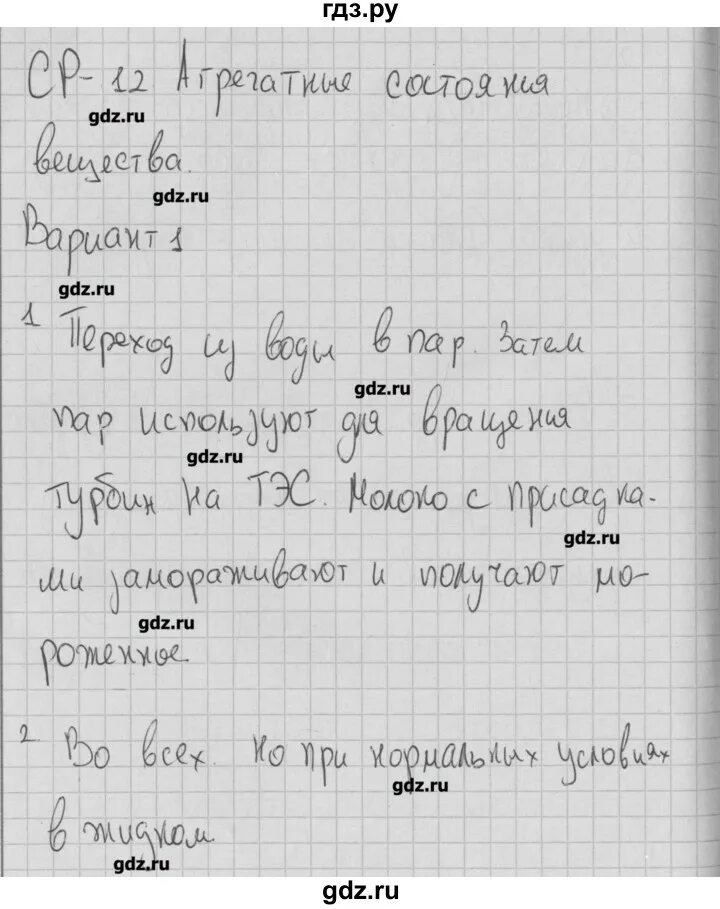 гдз.ру
СР-12 Агрегатные состояния
gdz.ru
вещества.
gdz.ru
Вариант 1
gdz.ru
1 Переход из воды в пар. Затем
gdz.ru
пар используют для вращения
gdz.ru
турбин на ТЭС. Молоко с присадка-
gdz.ru
ми замораживают и получают мо-
gdz.ru
роженное.
2. Во всех. Но при нормальных условиях
gdz.ru
в жидком
gdz.ru
gdz.ru